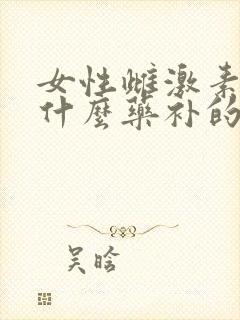 女性雌激素
什麼藥补的
吴晗